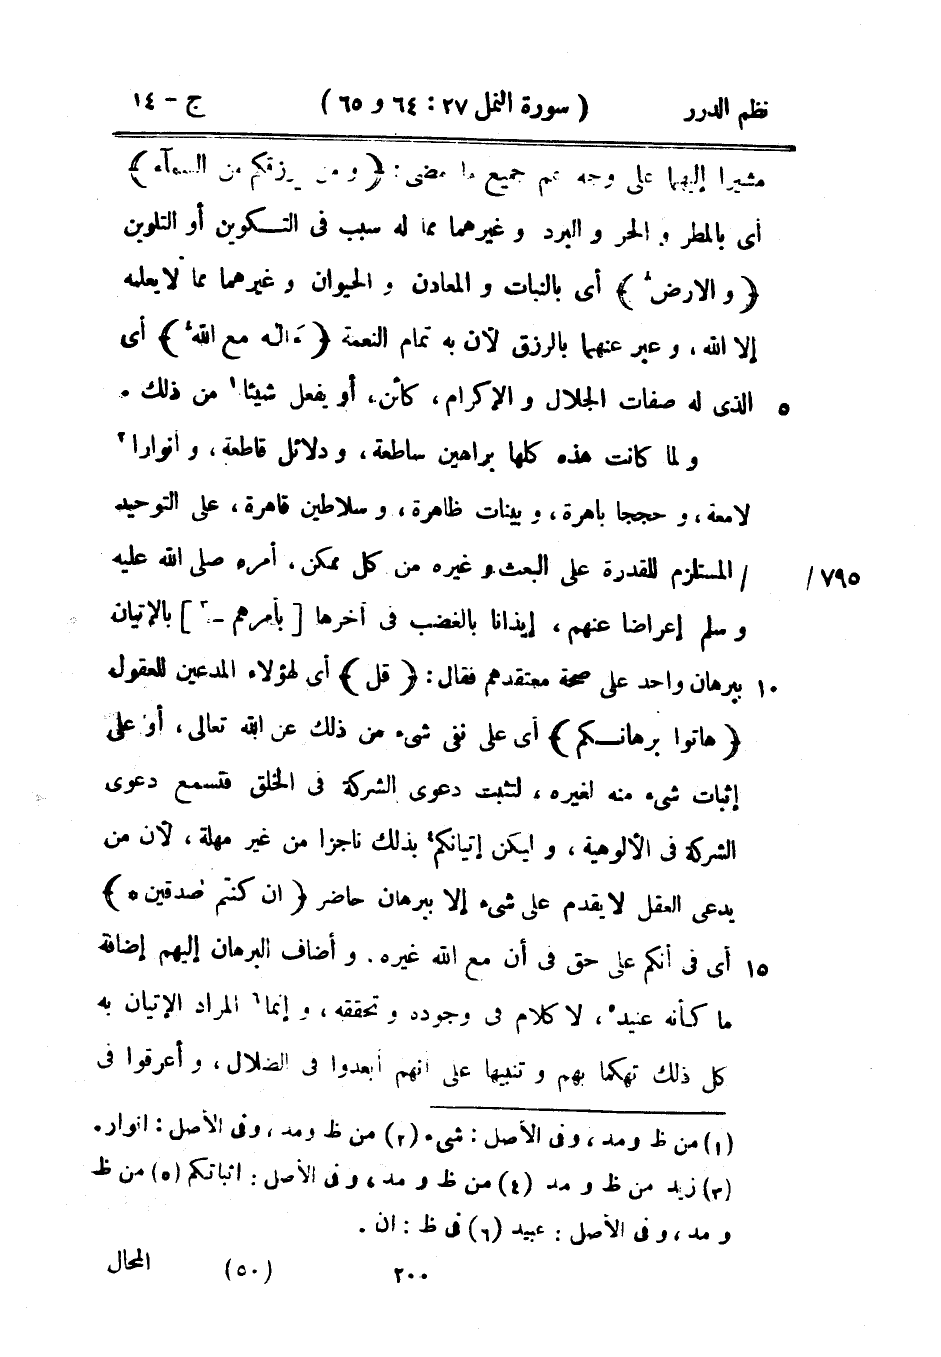 نظم الدرر ( سورة النمل ٢٧ : ٦٤ و ٦٥ ) ج - ١٤
مشيرا إليهما على وجه عم جميع ما مضى : ﴿ و من يرزقكم من السمآء ﴾
أى بالمطر و الحر و البرد و غيرهما مما له سبب فى التكوين أو التلوين
﴿ و الارض ۚ ﴾ أى بالنبات و المعادن و الحيوان و غيرهما مما لا يعلمه
إلا الله ، و عبر عنهما بالرزق لأن به تمام النعمة ﴿ ءاله مع الله ۚ ﴾ أى
٥ الذى له صفات الجلال و الإكرام ، كائن، أو يفعل شيئا١ من ذلك .
و لما كانت هذه كلها براهين ساطعة ، و دلائل قاطعة ، و أنوارا٢
لامعة ، و حججا باهرة ، و بينات ظاهرة ، و سلاطين قاهرة ، على التوحيد
٧٩٥ / / المستلزم للقدرة على البعث و غيره من كل ممكن ، أمره صلى الله عليه
و سلم إعراضا عنهم ، إيذانا بالغضب فى آخرها [ بأمرهم -٣ ] بالإتيان
١٠ ببرهان واحد على صحة معتقدهم فقال : ﴿ قل ﴾ أى لهؤلاء المدعين للعقول
﴿ هاتوا برهانكم ﴾ أى على نفى شىء من ذلك عن الله تعالى ، أو على
إثبات شىء منه لغيره ، لتثبت دعوى الشركة فى الخلق فتسمع دعوى
الشركة فى الألوهية ، و ليكن إتيانكم٤ بذلك ناجزا من غير مهلة ، لأن من
يدعى العقل لا يقدم على شىء إلا ببرهان حاضر ﴿ ان كنتم صدقين ه ﴾
١٥ أى فى أنكم على حق فى أن مع الله غيره . و أضاف البرهان إليهم إضافة
ما كأنه عنيد٥ ، لا كلام فى وجوده و تحققه ، و إنما٦ المراد الإتيان به
كل ذلك تهكما بهم و تنبيها على أنهم أبعدوا فى الضلال ، و أعرقوا فى
(١) من ظ و مد ، و فى الأصل : شىء (٢) من ظ و مد ، و فى الأصل : انوار .
(٣) زيد من ظ و مد (٤) من ظ و مد ، و فى الأصل : اثباتكم (٥) من ظ
و مد ، و فى الأصل : عبيد (٦) فى ظ : ان .
٢٠٠ (٥٠) المحال